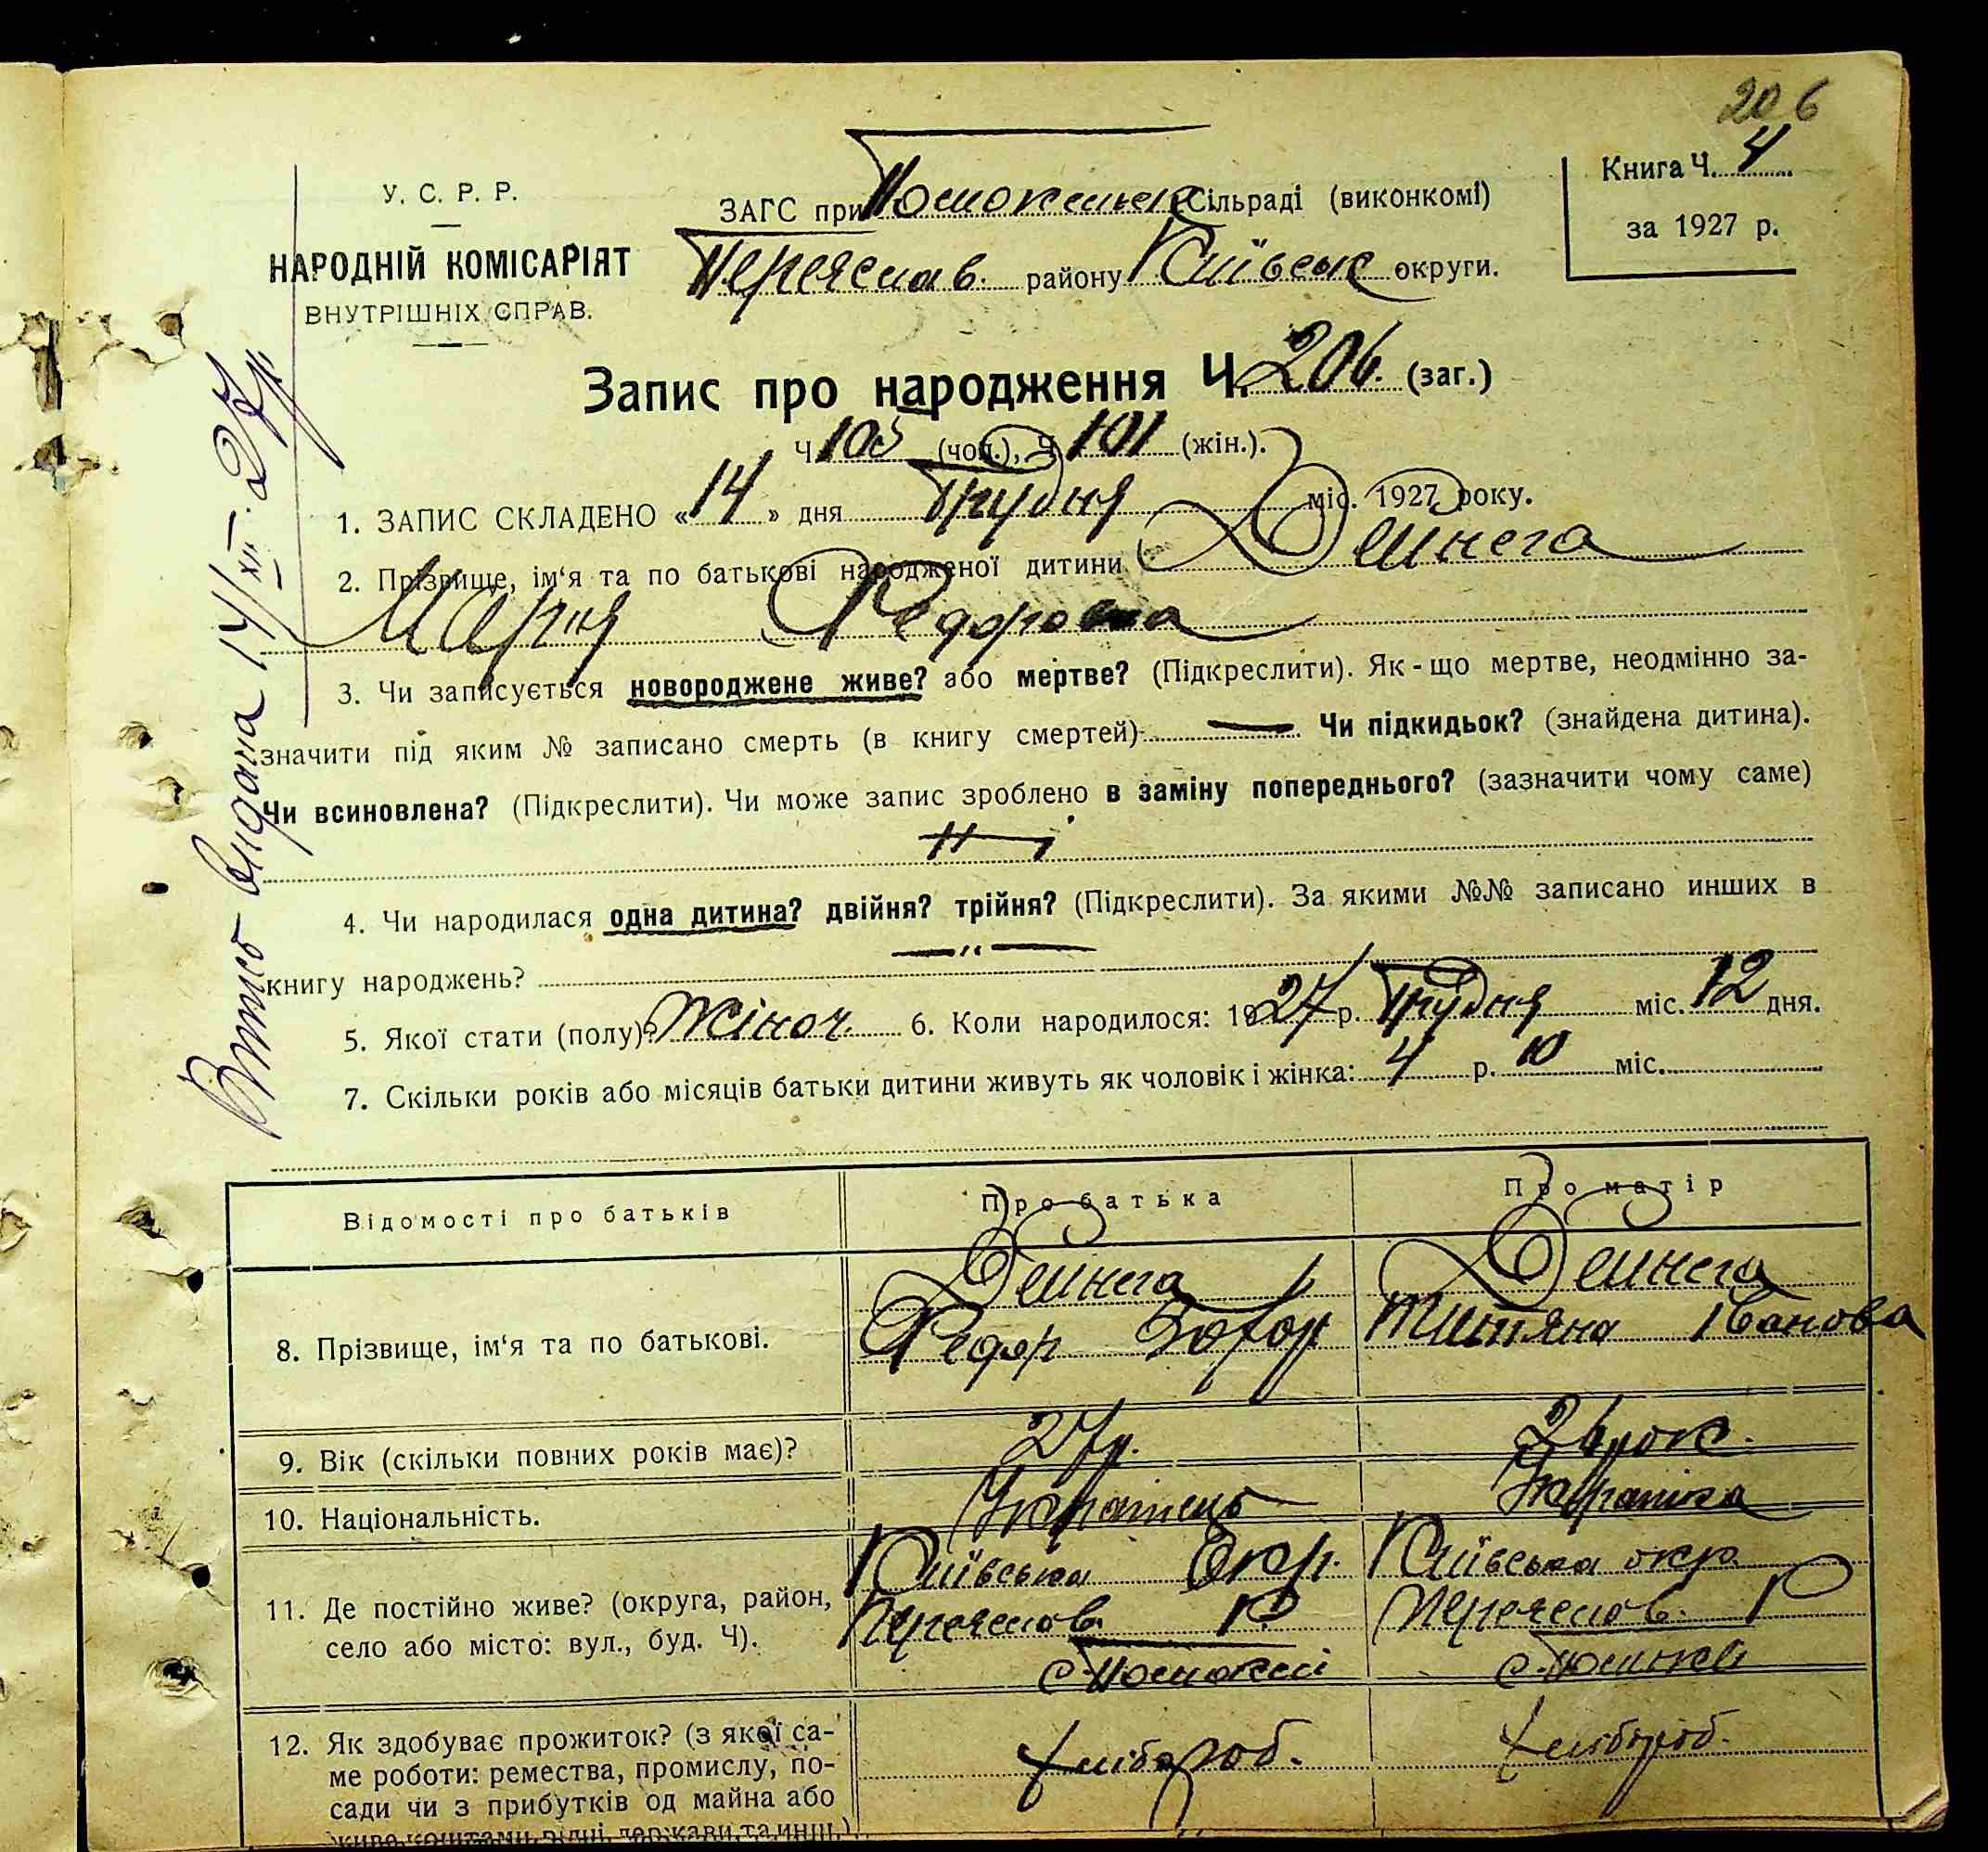 206
У. С. Р. Р.
НАРОДНІЙ КОМІСАРІЯТ
ВНУТРІШНІХ СПРАВ.
ЗАГС при Помоксельск Сільраді (виконкомі)
Переяслав. району Київськ округи.
Книга Ч. 4
за 1927 р.
Запис про народження Ч. 206. (заг.)
Ч 105 (чол.), Ч 101 (жін.).
1. ЗАПИС СКЛАДЕНО «14» дня Грудня міс. 1927 року.
2. Прізвище, ім‘я та по батькові народженої дитини Дейнега
Мария Федоровна
3. Чи записується новороджене живе? або мертве? (Підкреслити). Як-що мертве, неодмінно за-
значити під яким № записано смерть (в книгу смертей) — Чи підкидьок? (знайдена дитина).
Чи всиновлена? (Підкреслити). Чи може запис зроблено в заміну попереднього? (зазначити чому саме)
4. Чи народилася одна дитина? двійня? трійня? (Підкреслити). За якими №№ записано инших в
книгу народжень? — " —
5. Якої стати (полу)? Жіноч. 6. Коли народилося: 1927 р. Грудня міс. 12 дня.
7. Скільки років або місяців батьки дитини живуть як чоловік і жінка: 4 р. 10 міс.
Відомості про батьків Про батька Про матір
8. Прізвище, ім‘я та по батькові.
Дейнега Дейнега
Федор Тетяна Іванова
9. Вік (скільки повних років має)? 27 р. 26 рок.
10. Національність. Українець Українка
11. Де постійно живе? (округа, район,
село або місто: вул., буд. Ч).
Київська Окр. Київська окр.
Переяслав. Р. Переяслав. Р
12. Як здобуває прожиток? (з якої са-
ме роботи: ремества, промислу, по-
сади чи з прибутків од майна або
живе коштами рідні, держави та инш.)
хлібороб. хлібороб.
видана 14/XII-27 р.